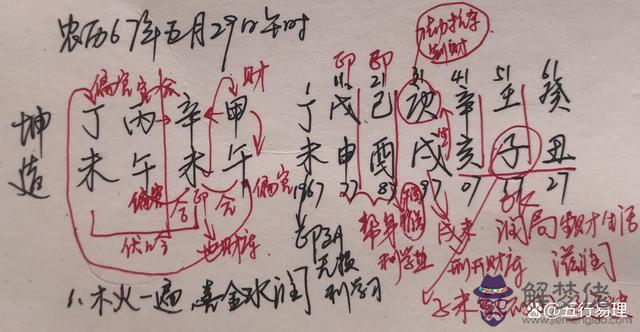 农历67年五月29日午时
坤造
偏官 官 合 财
丁 丙 辛 甲
未 午 未 午
偏官 合 印 合 偏官
伏吟
也财库
1.木火一遍 喜金水润
印 印
11 21 31 41 51 61
丁 戊 己 庚 辛 壬 癸
未 申 酉 戌 亥 子 丑
1967 77 87 97 07 17 27
帮身
利学业
无根
利学习
戌未
刑开财库
润局 生财 生活
滋润
子未
解梦佬
@五行易理